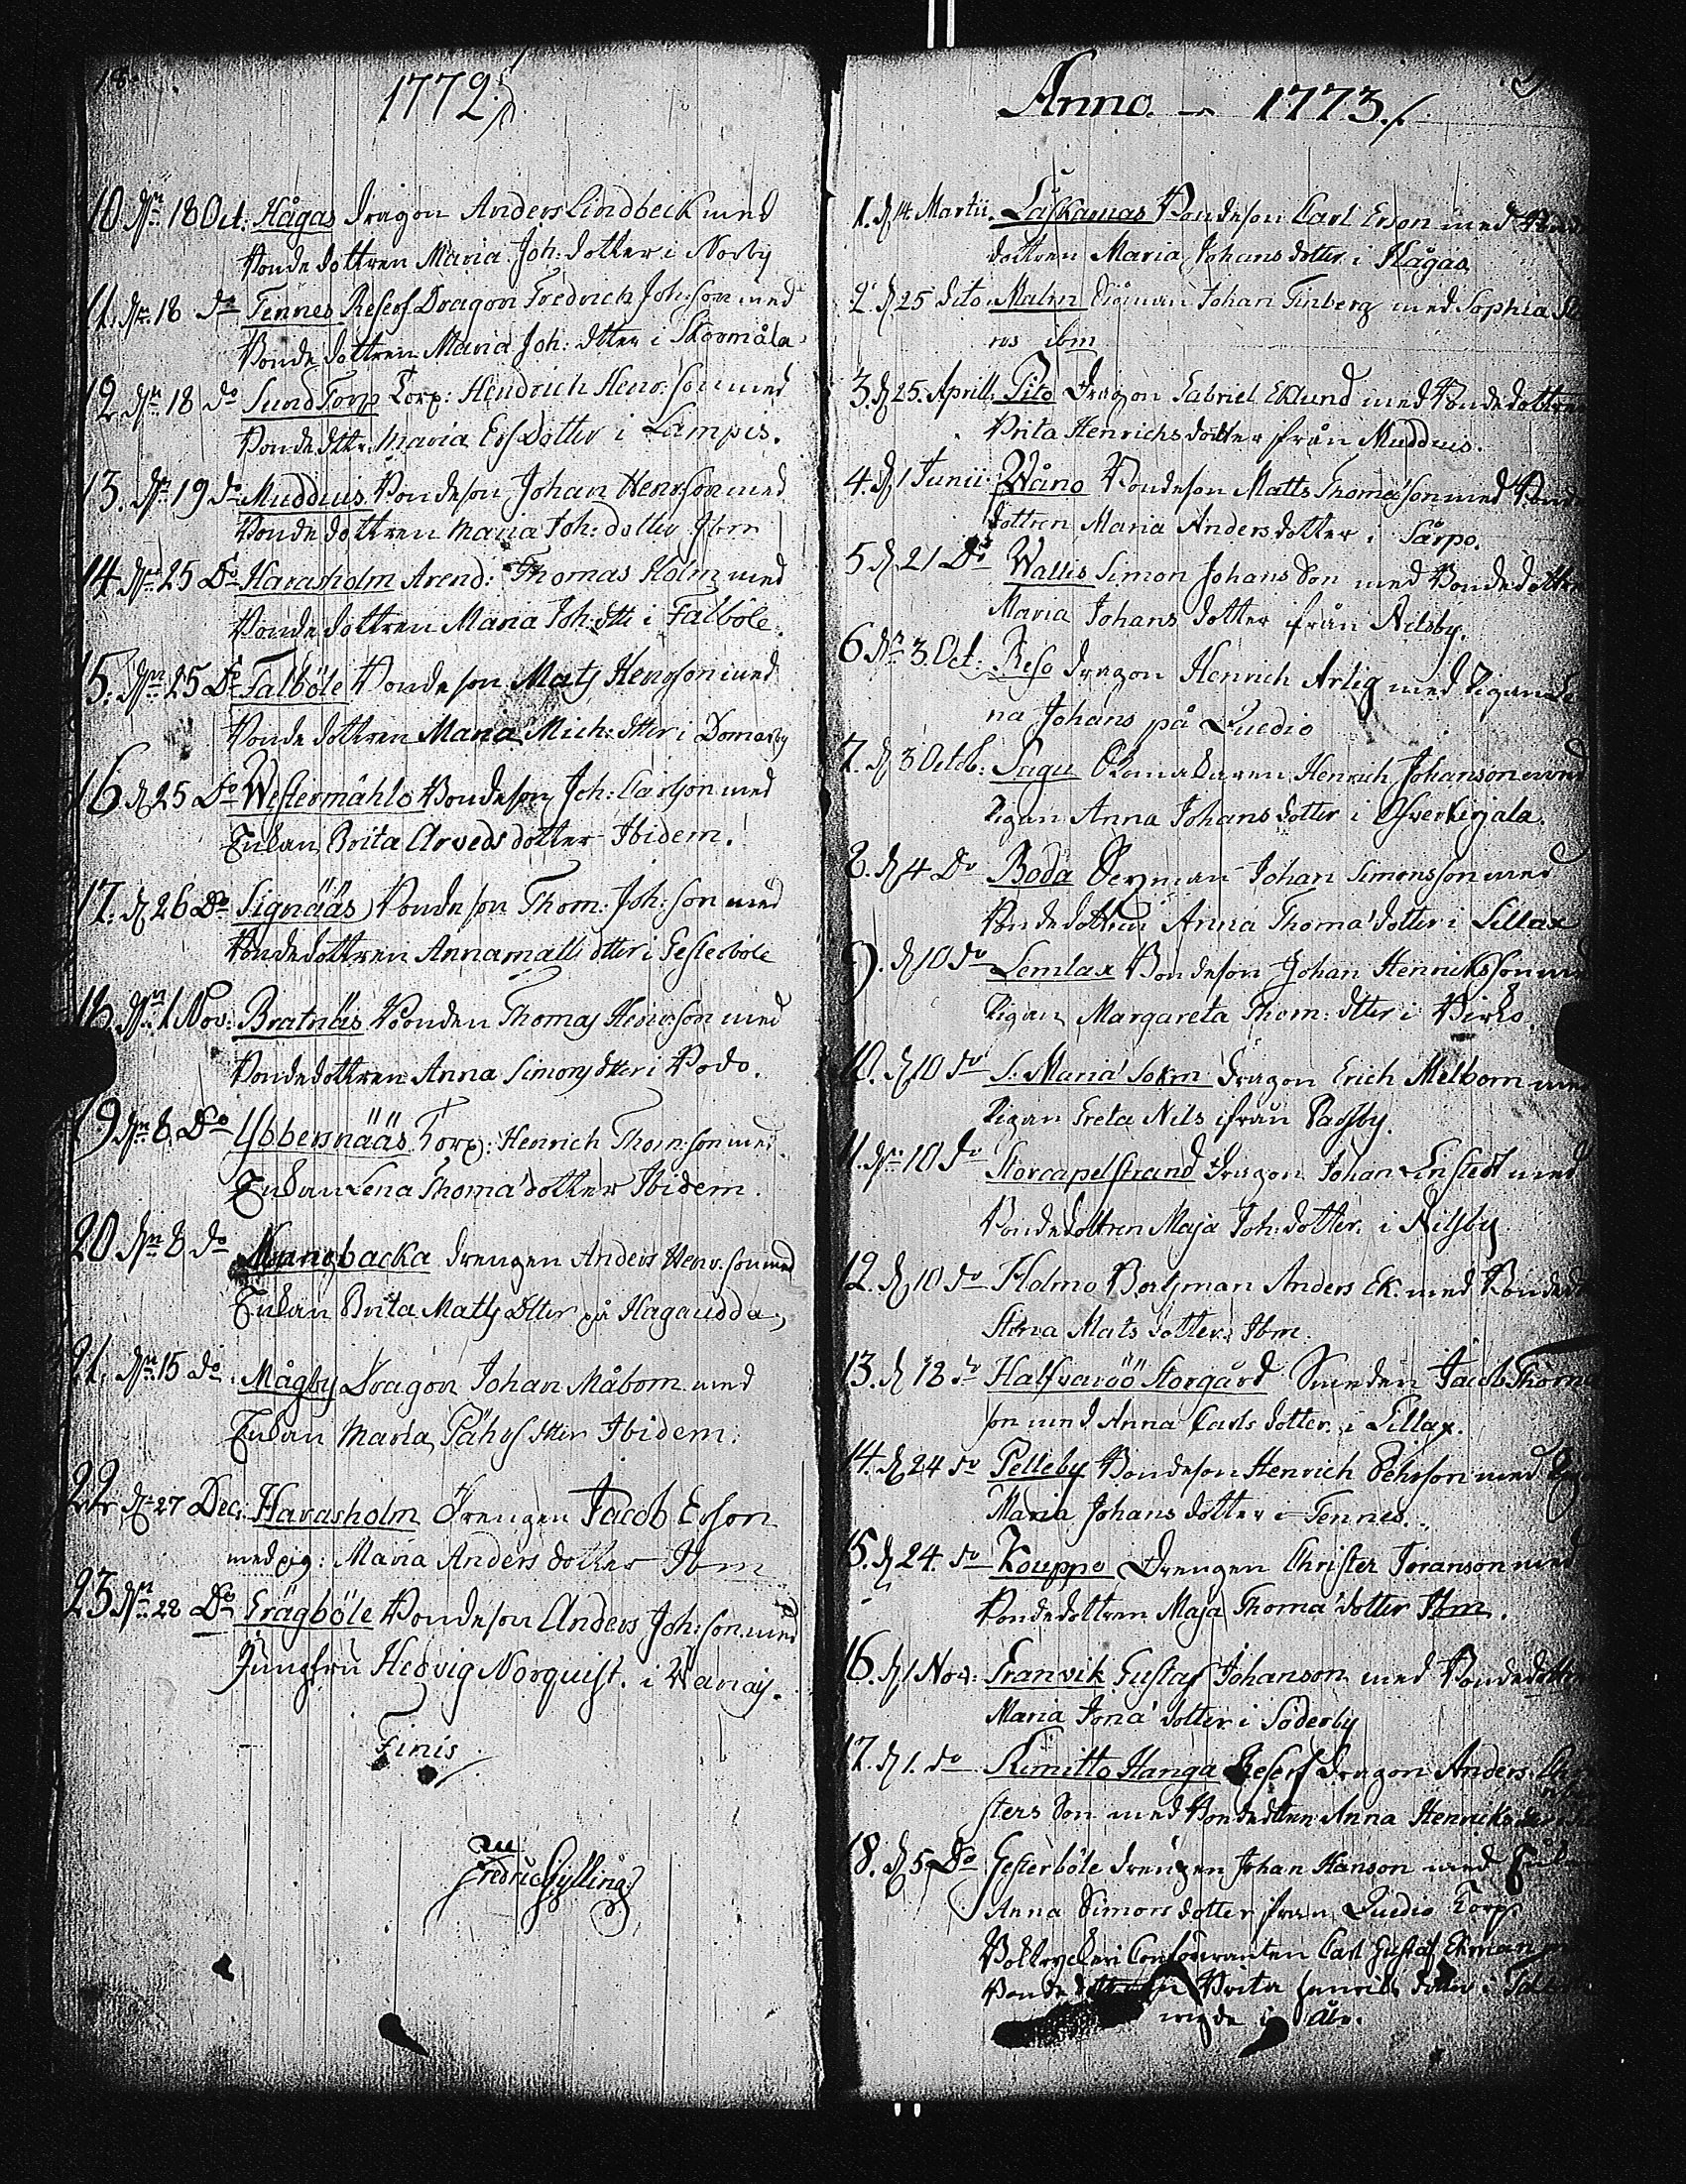 1772
10 dn 18 Oct: Hågas Dragon Anders Lindbeck med
Bonde dottren Maria Joh: dotter i Norby
11. dn. 18 do Tennes Reserf Dragon Fredrich Joh:son med
Bonde dottren Maria Joh: dtter i Skogmåla
12. dn. 18 do Sund Torp Torp: Hendrich Henr: son med
Bonde dttr. Maria Ers Dotter i Lampis.
13. dn 19 do Mudduis Bondeson Johan Henrson med
Bonde dottren Maria Joh: dotter Ibm
14 dn 25 Do Harasholm Arend: Thomas Holm med
Bonde dottren Maria Joh: dtt i Falböle.
15. dn. 25 Do Falböle Bondeson Mats Henrson med
Bonde dottren Maria Mich: dtter i Domarby
16 d 25 Do Westermåhlo Bondeson Joh: Carlson med
Enkan Brita Arveds dotter Ibidem.
17. d 26 Do Signääs Bondeson Thom: Joh: son med
Bondedottren Anna Matts dtter i Gesterböle
18 dn. 1 Nov: Bratnäs Bonden Thomas Henr:son med
Bondedottren Anna Simons dtter i Bodo.
19 dn 8 Do Ybbersnääs Torp: Henrich Thom: son med
Enkan Lena Thomæ dotter Ibidem.
20 dn 8 do backa Drengen Anders Henr. son med
Enkan Brita Matts Dtter på Hagaudda,
21. dn. 15 do. Mågby Dragon Johan Måbom med
Enkan Maria Påhls dtter Ibidem.
22 d 27 Dec: Harasholm Drengen Jacob Erson
med pig: Maria Anders dotter Ibm
23 dn. 28 Do Grägböle Bondeson Anders Joh: son med
Jungfru Hedvig Norquist. i Wariais.
Finis
Fredric Gylling
Anno. 1773.
1. d 14 Martii. Låskarnas Bondeson Carl Erson med Bonde
dottren Maria Johans dotter i Hågas
2. d. 25 dito. Malm Johan Finberg med Sophia
ros ibm
3. d 25. Aprill. Pito Dragon Gabriel Eklund med Bondedottren
Brita Henrichs dotter från Mudduis.
4. d 1 Junii: Wåno Bondeson Matts Thomæ son med Bonde
dottren Maria Anders dotter i Särpo.
5 d 21 Do Wallis Simon Johans Son med Bondedottren
Maria Johans dotter från Nilsby.
6 dn 3. Oct: Reso Dragon Henrich Arlig med Pigan
na Johans på Quedio
7. d 3 Octob: Sagu Henrich Johanson med
Pigan Anna Johans dotter i Öfverkirjala.
8. d 4 Do Boda Johan Simonsson med
Bondedottren Anna Thomæ dotter i Lillax
9. d 10 do Lemlax Bondeson Johan Henricksson med
Pigan Margareta Thom: dtter i Pirko.
10. d 10 do S: Mariæ Sokn Dragon Erich Melbom med
Pigan Greta Nils ifrån Pafsby.
11. dn 10 do Storcapelstrand Dragon Johan Enstedt med
Bondedottren Maja Joh: dotter i Nilsby
12. d 10 do Holmo Båtsman Anders Ek. med Bonded
Stina Mats dotter Ibm.
13. d 12 do Halfvaröö Storgård Smeden Jacob Thomæ
son med Anna Carls dotter i Lillax.
14. d 24 do Pelleby Bondeson Henrich Pehrson med
Maria Johans dotter i Tennes.
15. d 24. do Kouppo Drengen Christer Joranson med
Bondedottren Maja Thomæ dotter Ibm.
16. d 1 Nov: Granvik Gustaf Johanson med Bondedottren
Maria Jonæ dotter i Söderby
17. d 1. do Kimitto Hanga Reserf Dragon Anders Chri
sters Son med Bondedttren Anna Henricks
18. d 5 Do Gesterböle drengen Johan Hanson med Enkan
Anna Simons dotter från Quedio Torp.
Carl Gustaf Ekman
Bonde Brita Henrichs dotter i
i år.